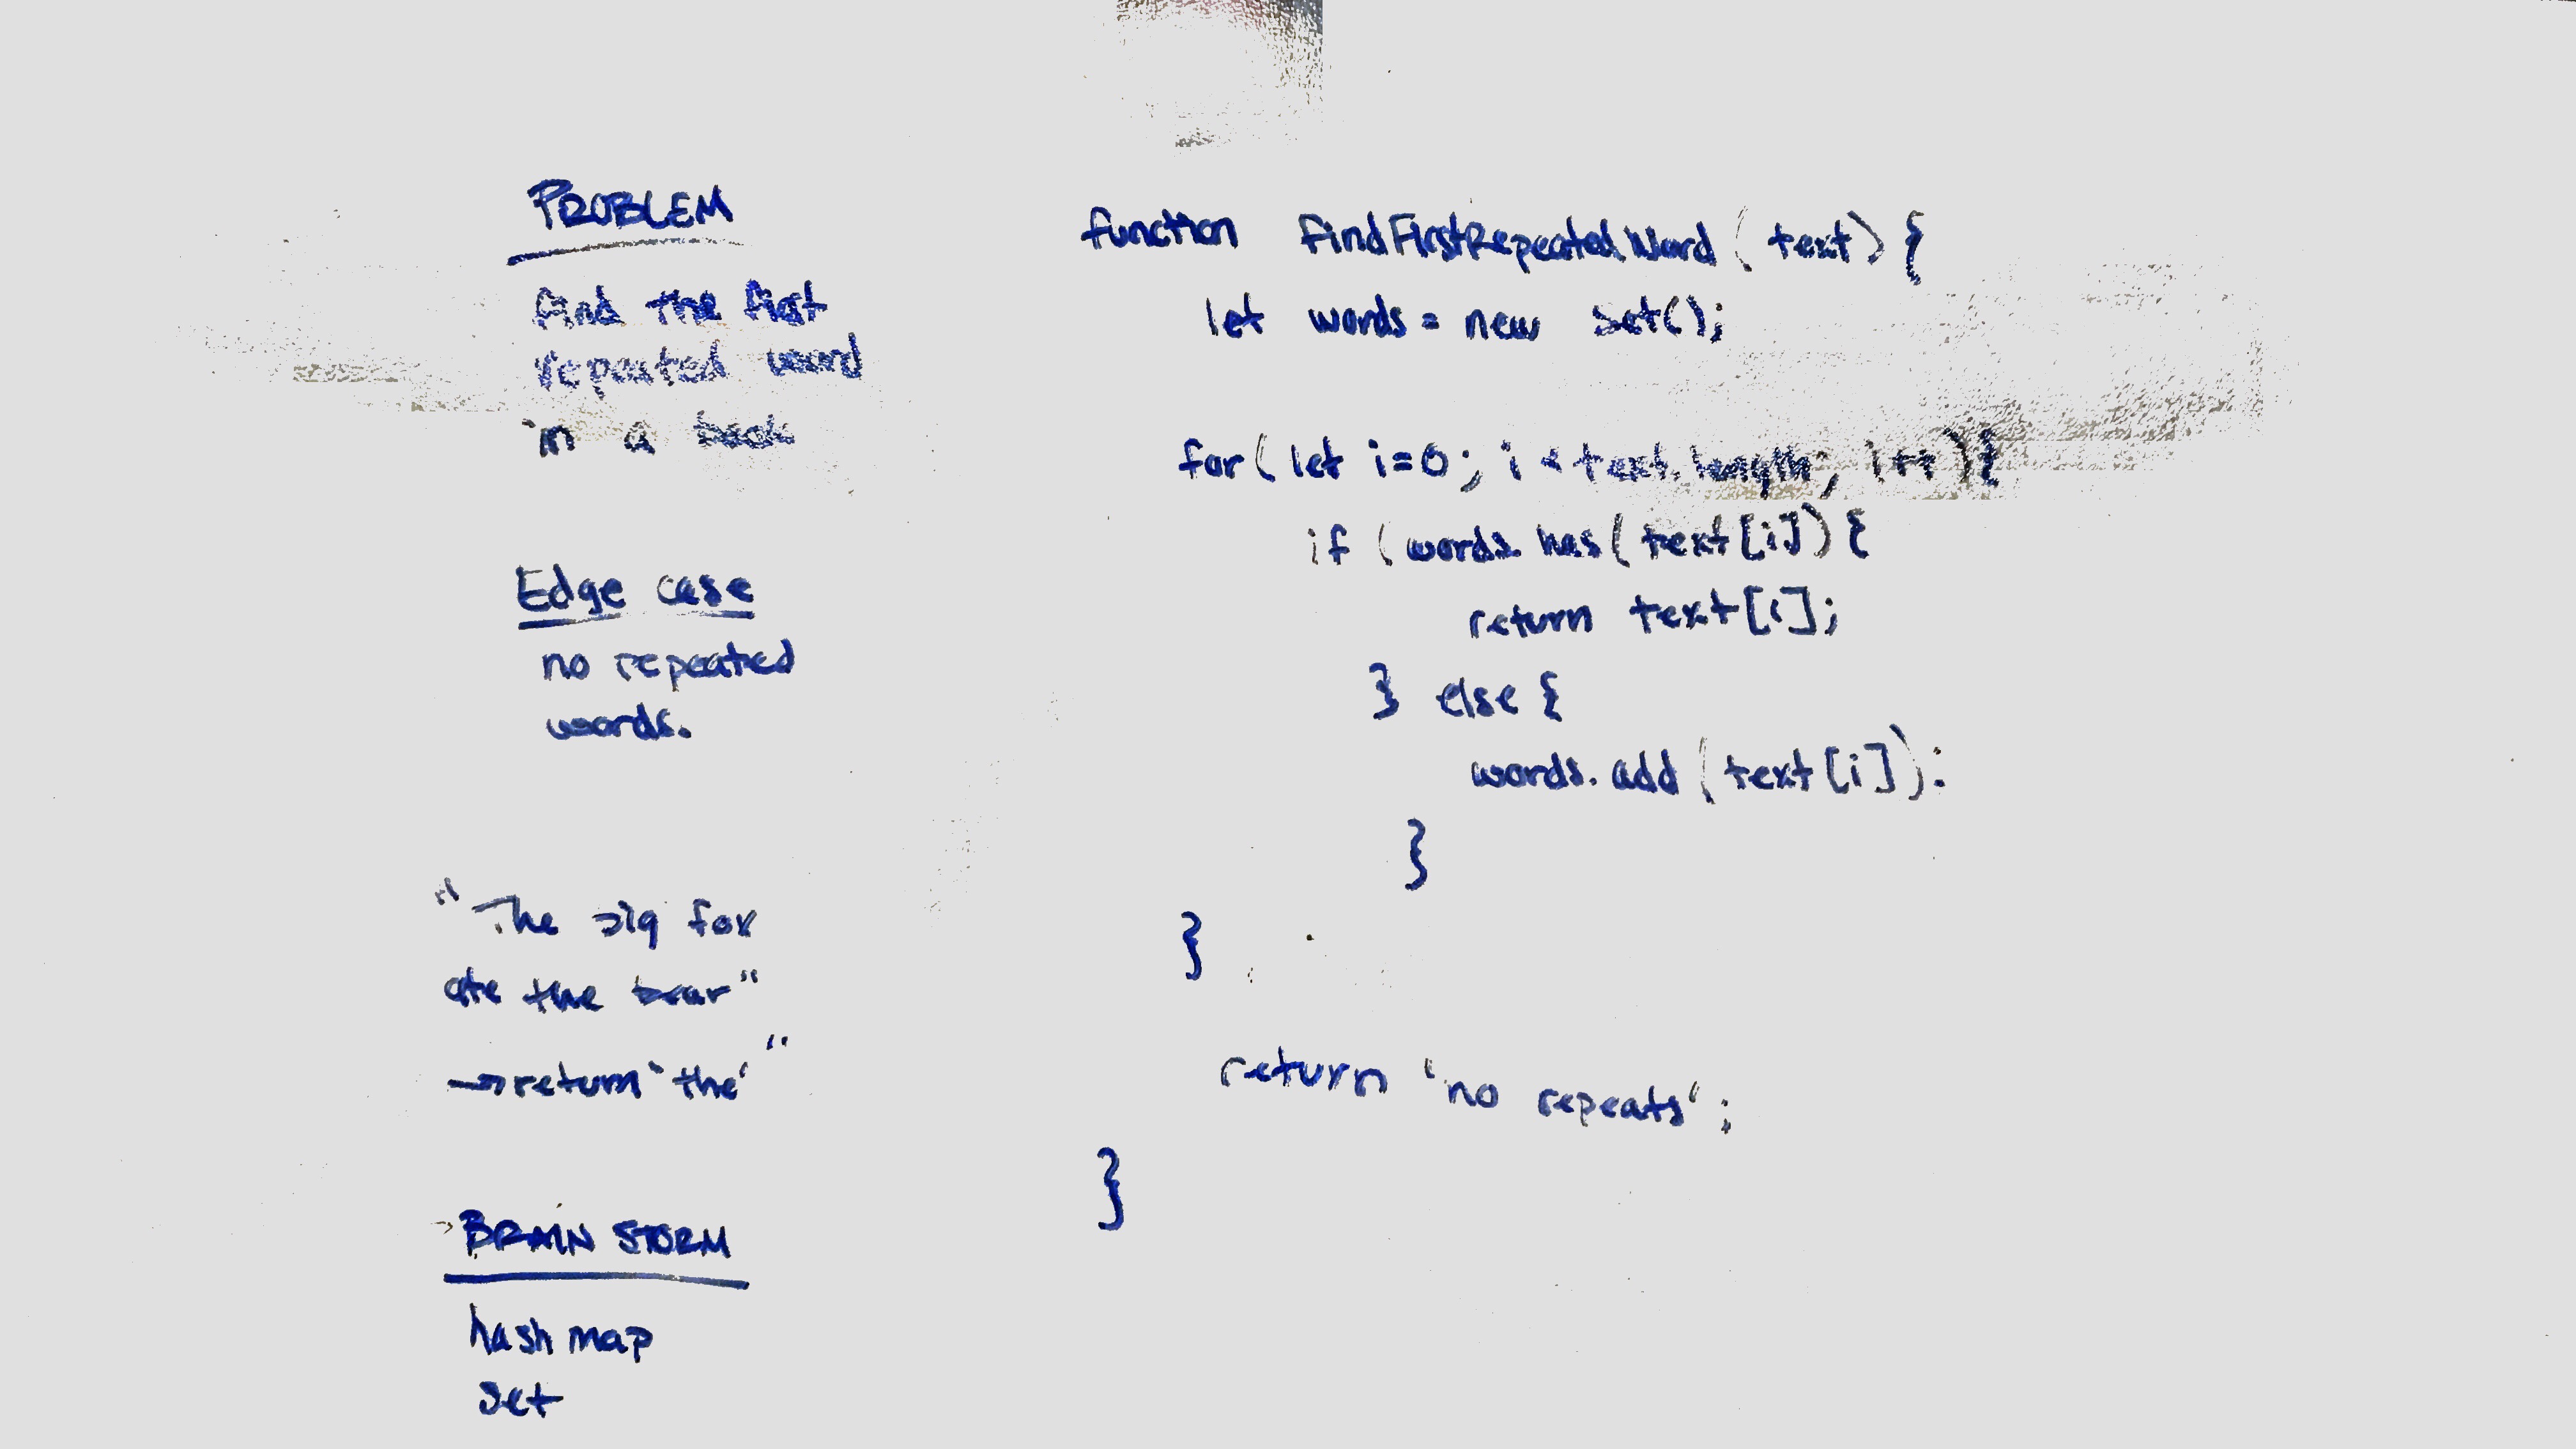 PROBLEM
find the first
repeated word
in a book
Edge case
no repeated
words.
"The big fox
ate the bear"
→ return "the"
BRAIN STORM
hash map
set
function findFirstRepeatedWord (text) {
let words = new Set();
for( let i=0; i < text.length; i++){
if (words.has(text[i]) {
return text[i];
} else {
words.add (text[i]);
}
}
return 'no repeats';
}